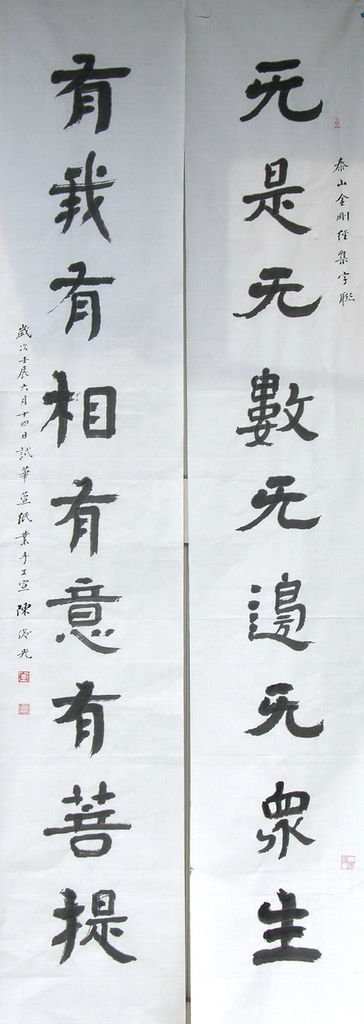 泰山金剛經集字聯
无是无數无邊无眾生
有我有相有意有菩提
歲次壬辰六月十四日試華萱紙業手工宣 陳俊光